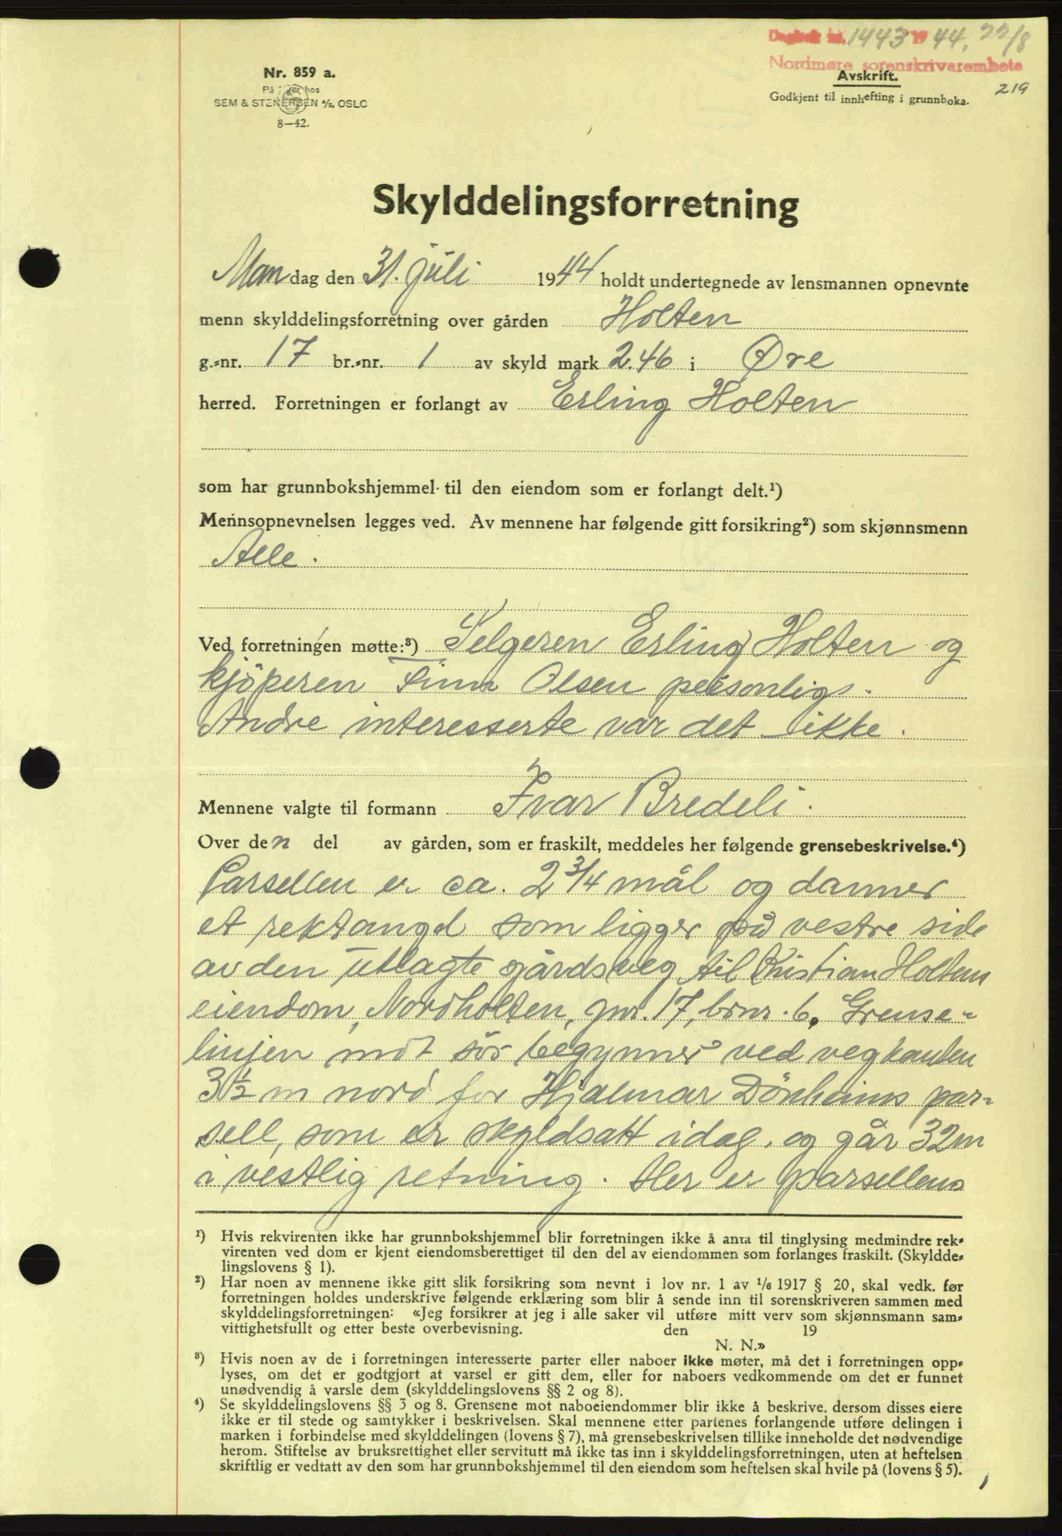 Dagbok nr. 1443 1944, 22/8
Nordmøre sorenskriverembete
219
Nr. 859 a.
SEM & STENERSEN A/S, OSLO
8-42.
Avskrift.
Godkjent til innhefting i grunnboka.
Skylddelingsforretning
Mandag den 31. juli 1944 holdt undertegnede av lensmannen opnevnte
menn skylddelingsforretning over gården Holten
g.-nr. 17 br.-nr. 1 av skyld mark 2.46 i Øre
herred. Forretningen er forlangt av Erling Holten
som har grunnbokshjemmel til den eiendom som er forlangt delt.¹)
Mennsopnevnelsen legges ved. Av mennene har følgende gitt forsikring²) som skjønnsmenn
Alle.
Ved forretningen møtte:³) Selgeren Erling Holten og
kjöperen Finn Olsen personlig.
Andre interesserte var det ikke.
Mennene valgte til formann Ivar Bredeli.
Over den del av gården, som er fraskilt, meddeles her følgende grensebeskrivelse.⁴)
Parsellen er ca. 2 3/4 mål og danner
et rektangel som ligger på vestre side
av den utlagte gårdsveg til Kristian Holtens
eiendom, Nordholten, gnr. 17, brnr. 6. Grense-
linjen mot sör begynner ved vegkanten
3 1/2 m nord for Hjalmar Dönheims par-
sell, som er skyldsatt idag, og går 32 m
i vestlig retning. Her er parsellens
¹) Hvis rekvirenten ikke har grunnbokshjemmel blir forretningen ikke å anta til tinglysing medmindre rek-
virenten ved dom er kjent eiendomsberettiget til den del av eiendommen som forlanges fraskilt. (Skyldde-
lingslovens § 1).
²) Har noen av mennene ikke gitt slik forsikring som nevnt i lov nr. 1 av 1/6 1917 § 20, skal vedk. før
forretningen holdes underskrive følgende erklæring som blir å sende inn til sorenskriveren sammen med
skylddelingsforretningen: «Jeg forsikrer at jeg i alle saker vil utføre mitt verv som skjønnsmann sam-
vittighetsfullt og etter beste overbevisning. den 19
N. N.»
³) Hvis noen av de i forretningen interesserte parter eller naboer ikke møter, må det i forretningen opp-
lyses, om det er godtgjort at varsel er gitt dem, eller for naboers vedkommende om det er funnet
unødvendig å varsle dem (skylddelingslovens §§ 2 og 8).
⁴) Se skylddelingslovens §§ 3 og 8. Grensene mot naboeiendommer blir ikke å beskrive, dersom disses eiere
ikke er til stede og samtykker i beskrivelsen. Skal mennene etter partenes forlangende utføre delingen i
marken i forbindelse med skylddelingen (lovens § 7), må grensebeskrivelsen tillike inneholde det nødvendige
herom. Stiftelse av bruksrettighet eller servitutt må ikke tas inn i skylddelingsforretningen, uten at heftelsen
skriftlig er vedtatt av den som har grunnbokshjemmel til den eiendom som heftelsen skal hvile på (lovens § 5).